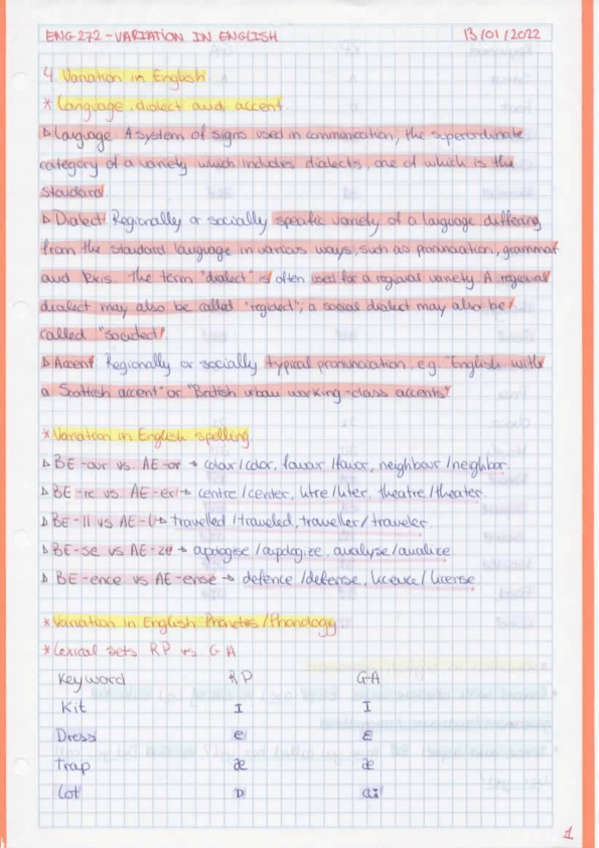 ENG 272 - VARIATION IN ENGLISH 13/01/2022
4. Variation in English
* Language, dialect and accent.
▷ Language: A system of signs used in communication; the superordinate
category of a variety which includes dialects, one of which is the
standard.
▷ Dialect: Regionally or socially specific variety of a language differing
from the standard language in various ways, such as pronunciation, grammar
and lexis. The term "dialect" is often used for a regional variety. A regional
dialect may also be called "regiolect"; a social dialect may also be
called "sociolect".
▷ Accent: Regionally or socially typical pronunciation. e.g. "English with
a Scottish accent" or "British urban working-class accents".
* Variation in English spelling.
▷ BE -our vs. AE -or → colour/color, favour/favor, neighbour/neighbor.
▷ BE -re vs. AE -er → centre/center, litre/liter, theatre/theater
▷ BE -ll vs AE -l → travelled/traveled, traveller/traveler.
▷ BE -se vs AE -ze → apologise/apologize, analyse/analize
▷ BE -ence vs AE -ense → defence/defense, licence/license.
* Variation in English Phonetics/Phonology.
* Lexical sets RP vs GA
Keyword RP GA
Kit I I
Dress e ɛ
Trap æ æ
Lot ɒ ɑː
1